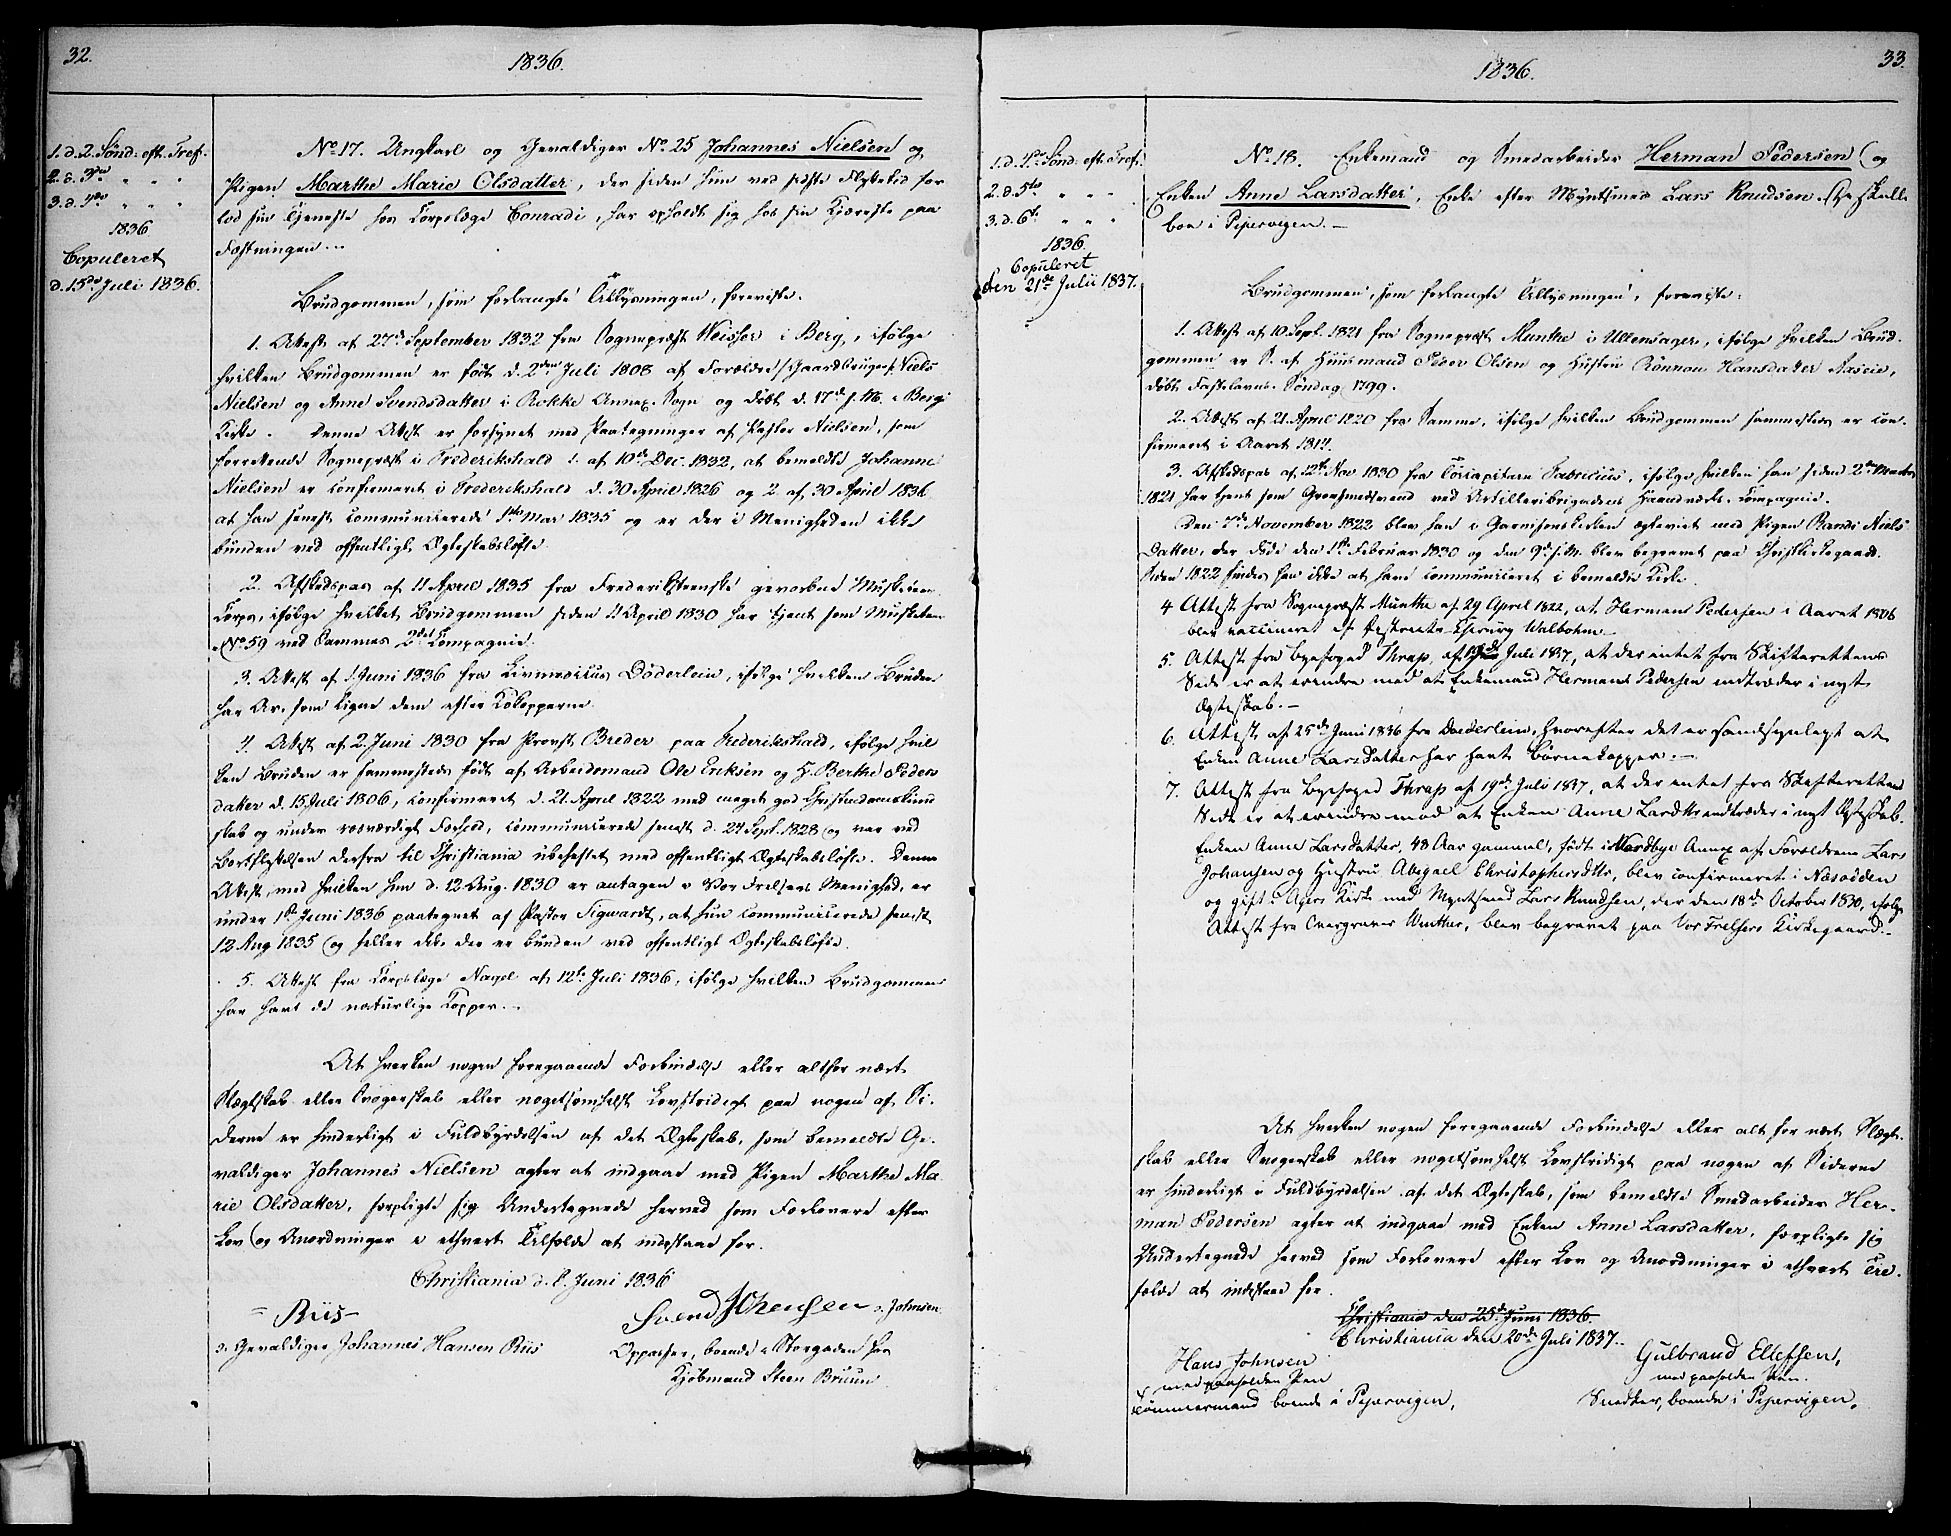 32.
1836.
1. d. 2. Sönd: eft. Tref.
2. d. 3die " " "
3. d. 4de " " "
1836
Copuleret
d. 15de Juli 1836.
No. 17. Ungkarl og Gevaldiger No. 25 Johannes Nielsen og
Pigen Marthe Marie Olsdatter, der siden hun ved sidste Flyttetid for
lod sin Tjeneste hos Corpslæge Conradi, har opholdt sig hos sin Kjæreste paa
Fæstningen. –
Brudgommen, som forlangte Tillysningen, foreviste.
1. Attest af 27de September 1832 fra Sognepræst Weisser i Berg, ifølge
hvilken Brudgommen er født d. 2den Juli 1808 af Forældre /Gaardbruger/ Niels
Nielsen og Anne Svendsdatter i Rokke Annex-Sogn og døbt d. 17de s. M. i Berg
Kirke. Denne Attest er forsynet med Paategninger af Pastor Nielsen, som
forrettende Sognepræst i Frederikshald 1. af 10de Dec. 1832, at bemeldte Johannes
Nielsen er confirmeret i Frederikshald d. 30 April 1826 og 2. af 30 April 1836
at han senest communicerede 1ste Mai 1835 og er der i Menigheden ikke
bunden ved offentligt Ægteskabsløfte.
2. Afskedspas af 11 April 1835 fra Frederikstenske gevorbne Musketeer
Corps, ifølge hvilket Brudgommen siden 11 April 1830 har tjent som Musketeer
No 59 ved Sammes 2det Compagnie.
3. Attest af 1 Juni 1836 fra Livmedicus Döderlein, ifølge hvilken Bruden
har Ar, som ligne dem efter Kokopperne.
4. Attest af 2. Juni 1830 fra Provst Breder paa Frederikshald, ifølge hvil
ken Bruden er sammesteds født af Arbeidsmand Ole Eriksen og H. Berthe Peders
datter d. 15 Juli 1806, confirmeret d. 21 April 1822 med meget god Christendomskund
skab og under rosværdigt Forhold, communicerede senest d. 24 Sept. 1828 og var ved
Bortflyttelsen derfra til Christiania ubeheftet med offentligt Ægteskabsløfte. Denne
Attest, med hvilken hun d. 12 Aug. 1830 er antagen i Vor Frelsers Menighed, er
under 1ste Juni 1836 paategnet af Pastor Sigwardt, at hun communicerede senest
12 Aug 1835 og heller ikke der er bunden ved offentligt Ægteskabsløfte.
5. Attest fra Corpslæge Nagel af 12te Juli 1836, ifølge hvilken Brudgommen
har havt de naturlige Kopper. –
At hverken nogen foregaaende Forbindelse eller altfor nært
Slægtskab eller Svogerskab eller nogetsomhelst Lovstridigt paa nogen af Si-
derne er hinderligt i Fuldbyrdelsen af det Ægteskab, som bemeldte Ge-
valdiger Johannes Nielsen agter at indgaae med Pigen Marthe Ma
rie Olsdatter, forpligte sig Undertegnede herved som Forlovere efter
Lov og Anordninger i ethvert Tilfælde at indestaae for.
Christiania d. 8. Juni 1836
– Riis –
Svend Johensen
Gevaldiger Johannes Hansen Riis
Opparter, boende i Storgaden hos
Kjöbmand Steen Bruun
33.
1836.
1. d. 4de Sönd: eft. Tref.
2. d. 5te " " "
3. d. 6te " " "
1836.
Copuleret
den 21de Julii 1837.
No. 18. Enkemand og Smedarbeider Herman Pedersen og
Enken Anne Larsdatter, Enke efter Myntsmed Lars Knudsen. Begge
boe i Pipervigen. –
Brudgommen, som forlangte Tillysningen, foreviste:
1. Attest af 10 Sept. 1821 fra Sognepræst Munthe i Ullensager, ifølge hvilken Brud-
gommen er S. af Huusmand Peder Olsen og Hustru Rönnau Hansdatter Aaseie,
døbt Fastelavns-Søndag 1799.
2. Attest af 21 April 1820 fra Samme, ifølge hvilken Brudgommen sammesteds er con-
firmeret i Aaret 1814.
3. Afskedspas af 12te Nov 1830 fra Fabricius, ifølge hvilken han siden 2den
1821 har tjent som Grovsmedsvend ved Artilleribrigadens Haandværks-Compagnie.
Den 7de November 1822 blev han i Garnisonskirken egteviet med Pigen Randi Niels
datter, der døde den 1ste Februar 1830 og den 9de s. M. blev begravet paa Christkirkegaard.
Siden 1822 findes han ikke at have communiceret i bemeldte Kirke.
4 Attest fra Sognepræst Munthe af 29 April 1822, at Herman Pedersen i Aaret 1806
blev vaccineret af Districts Chirurg Walbohm.
5. Attest fra Byefoged Thrap, af Juli 1837, at der intet fra Skifterettens
Side er at erindre mod at Enkemand Herman Pedersen indtræder i nyt
Ægteskab. –
6. Attest af 25de Juni 1836 fra Döderlein, hvorefter det er sandsynligt at
Enken Anne Larsdatter har havt Børnekopper. –
7. Attest fra Byefoged Thrap af 19de Juli 1837, at der intet fra Skifteretten
Side er at erindre mod at Enken Anne Larsdttr indtræder i nyt Ægteskab.
Enken Anne Larsdatter, 48 Aar gammel, født i Nordbye Annex af Forældrene Lars
Johansen og Hustru Abigael Christophersdttr, blev confirmeret i Næsodden
og gift i Agers Kirke med Myntsmed Lars Knudsen, der den 18de October 1830, ifølge
Attest fra Overgraver Winther, blev begravet paa Vor Frelsers Kirkegaard. –
At hverken nogen foregaaende Forbindelse eller alt for nært Slægt-
skab eller Svogerskab eller nogetsomhelst Lovstridigt paa nogen af Siderne
er hinderligt i Fuldbyrdelsen af det Ægteskab, som bemeldte Smedarbeider Her-
man Pedersen agter at indgaae med Enken Anne Larsdatter, forpligte sig
Undertegnede herved som Forlovere efter Lov og Anordninger i ethvert Til-
fælde at indestaae for.
Christiania den 25de Juni 1836.
Christiania den 20de Juli 1837.
Hans Johnsen
med paaholden Pen
Tömmermand boende i Pipervigen.
Gulbrand Ellefsen,
med paaholden Pen.
Snedker, boende i Pipervigen.